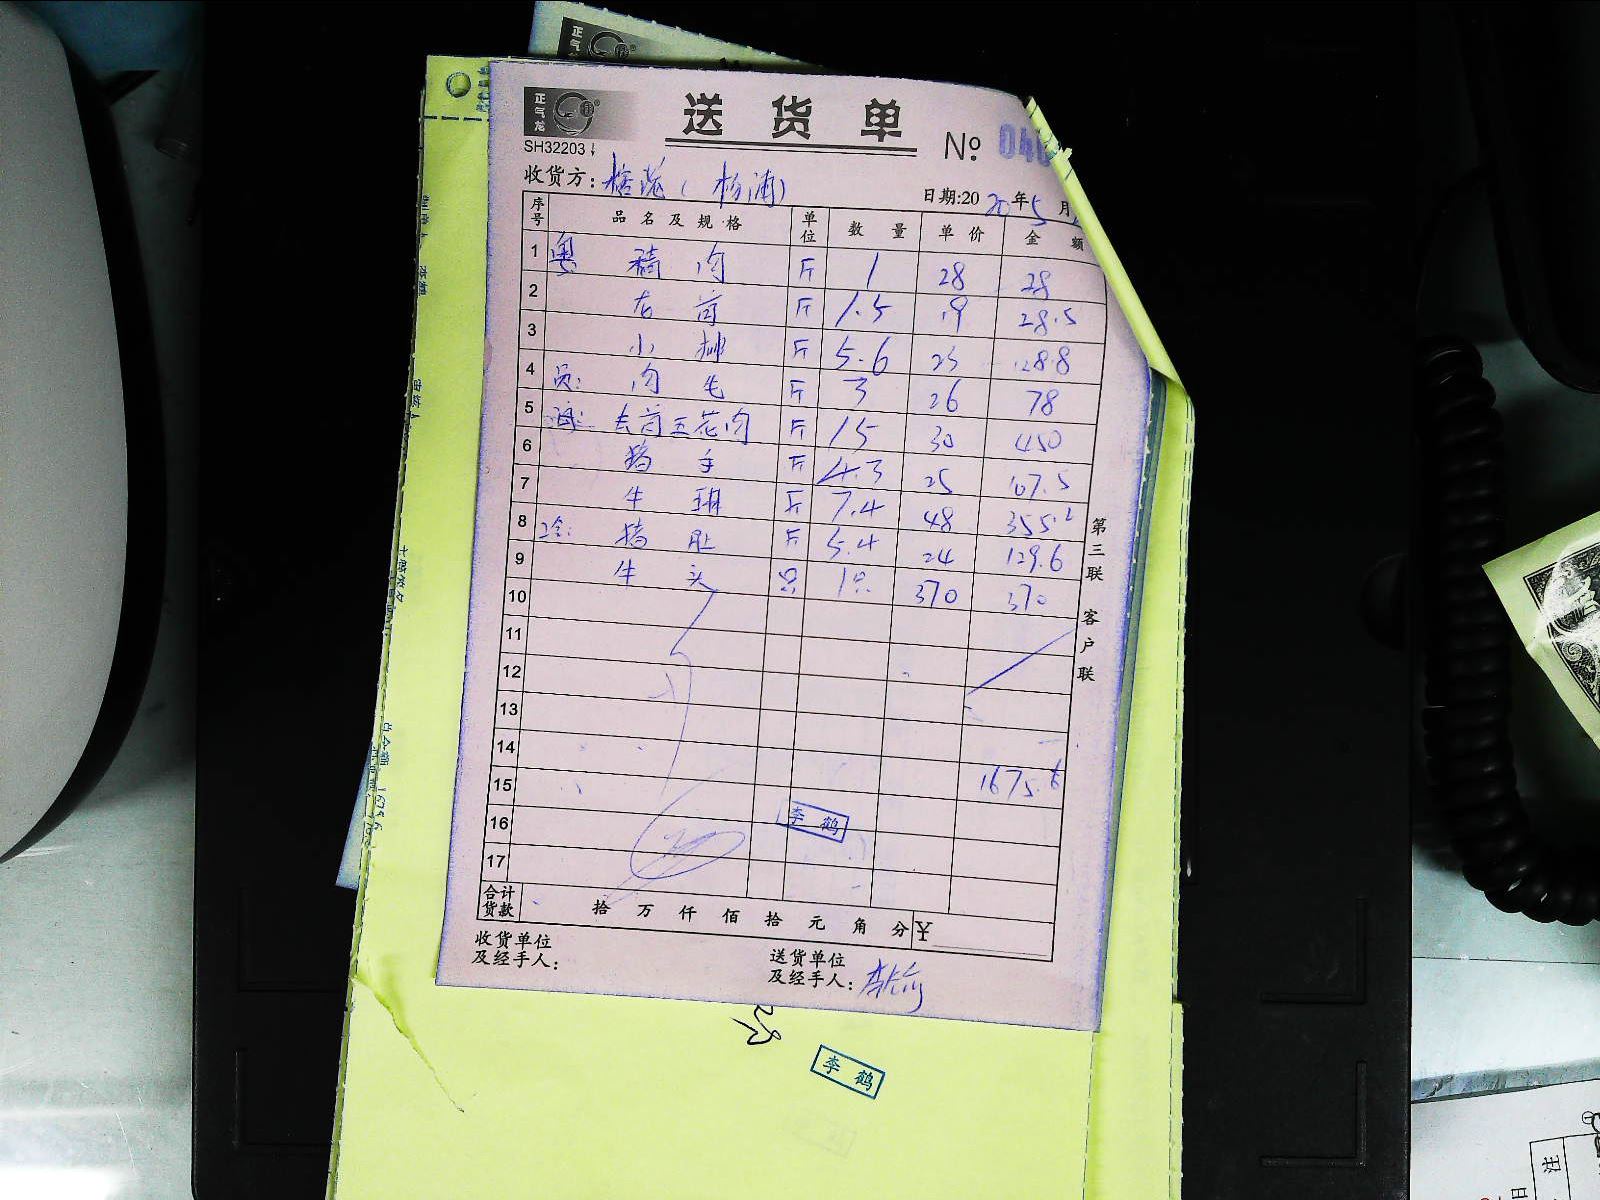 正气龙
送货单
SH32203
No
收货方：
(杨浦)
日期:2020年5月
序号 品名及规格 单位 数量 单价 金额
1 粤 精肉 斤 1 28 28
2 斤 1.5 19 28.5
3 小排 斤 5.6 23 128.8
4 斤 3 26 78
5 去骨五花肉 斤 15 30 450
6 猪手 斤 4.3 25 107.5
7 牛腩 斤 7.4 48 355.2
8 猪肚 斤 5.4 24 129.6
9 牛头 只 1只 370 370
10
11
12
13
14
15 1675.6
16 李鹤
17
合计货款 拾万仟佰拾元角分 ¥
收货单位及经手人：
送货单位及经手人：
第三联 客户联
李鹤
注
日